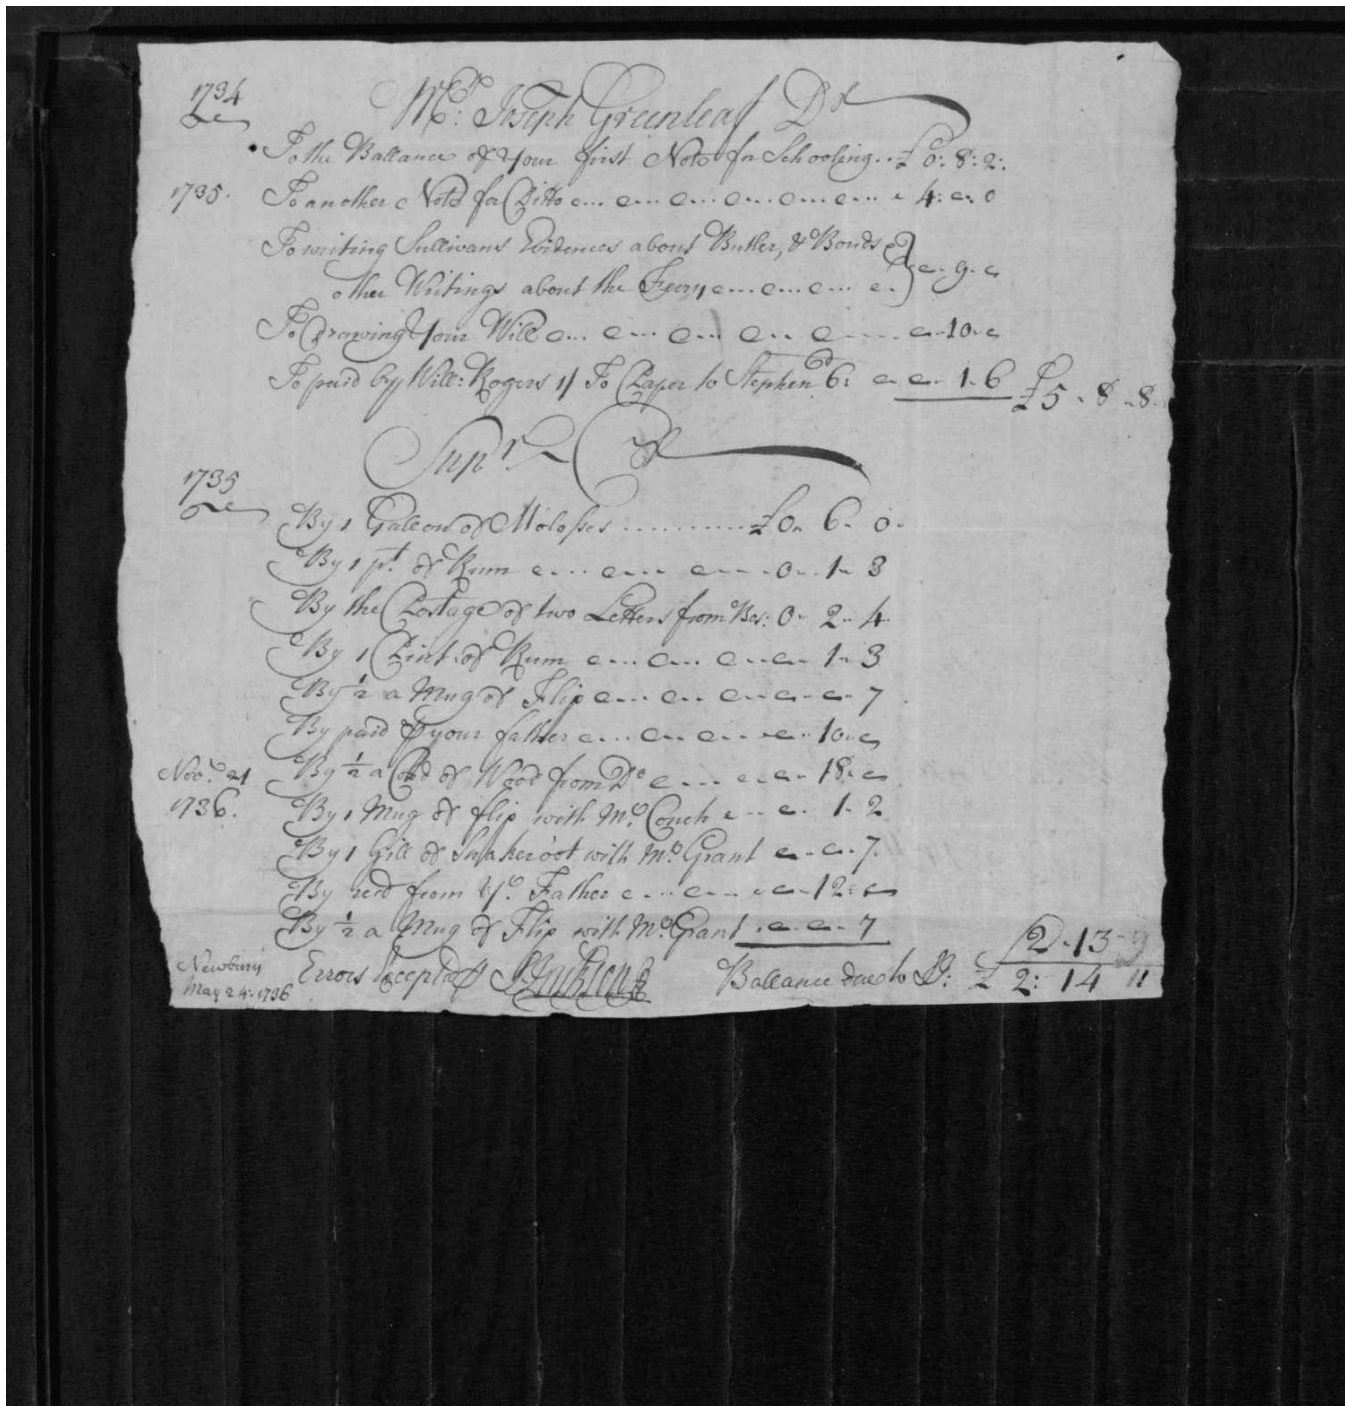 1734 Mr. Joseph Greenleaf Dr
To the Ballance of Your first Note for Schooling .. £ 0: 8: 2:
1735. To another Note for Ditto 4: 0: 0
To writing Sullivans Evidences about Butler, & Bonds &
other Writings about the Ferry - 9 -
To Drawing Your Will - 10 -
To paid by Will: Rogers 1/ To Paper to Stephen 6d: - 1 - 6 £5 - 8 - 8
Supr. Cr
1735
By 1 Gallon of Molosses ............ £0 - 6 - 0 -
By 1 pt. of Rum 0 - 1 - 3
By the Postage of two Letters from Bos: 0 - 2 - 4
By 1 Pint of Rum 1 - 3
By ½ a Mug of Flip 7
By paid by your father 10
Nov. 21 By ½ a Cord of Wood from Do 18
1736. By 1 Mug of flip with Mr. Couch 1 - 2
By 1 Gill of Snakeroot with Mr. Grant 7
By recd from Yr. Father 12
By ½ a Mug of Flip with Mr. Grant 7 2 - 13 - 9
Newbury Errors Excepted Ballance due to £ 2: 14 11
May 24: 1736